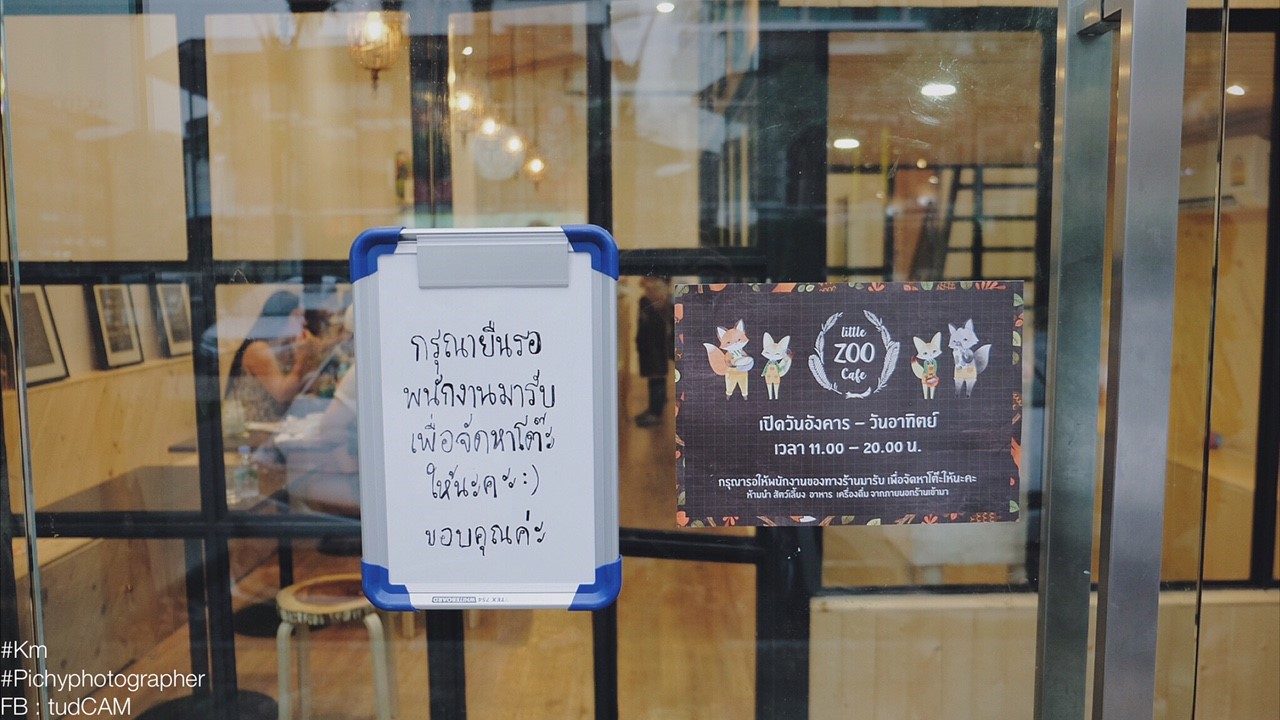 กรุณายืนรอ
พนักงานมารับ
เพื่อจัดหาโต๊ะ
ให้นะคะ:)
ขอบคุณค่ะ
TEX 754 WHITEBOARD
little
ZOO
Cafe
เปิดวันอังคาร – วันอาทิตย์
เวลา 11.00 – 20.00 น.
กรุณารอให้พนักงานของทางร้านมารับ เพื่อจัดหาโต๊ะให้นะคะ
ห้ามนำ สัตว์เลี้ยง อาหาร เครื่องดื่ม จากภายนอกร้านเข้ามา
#Km
#Pichyphotographer
FB : tudCAM